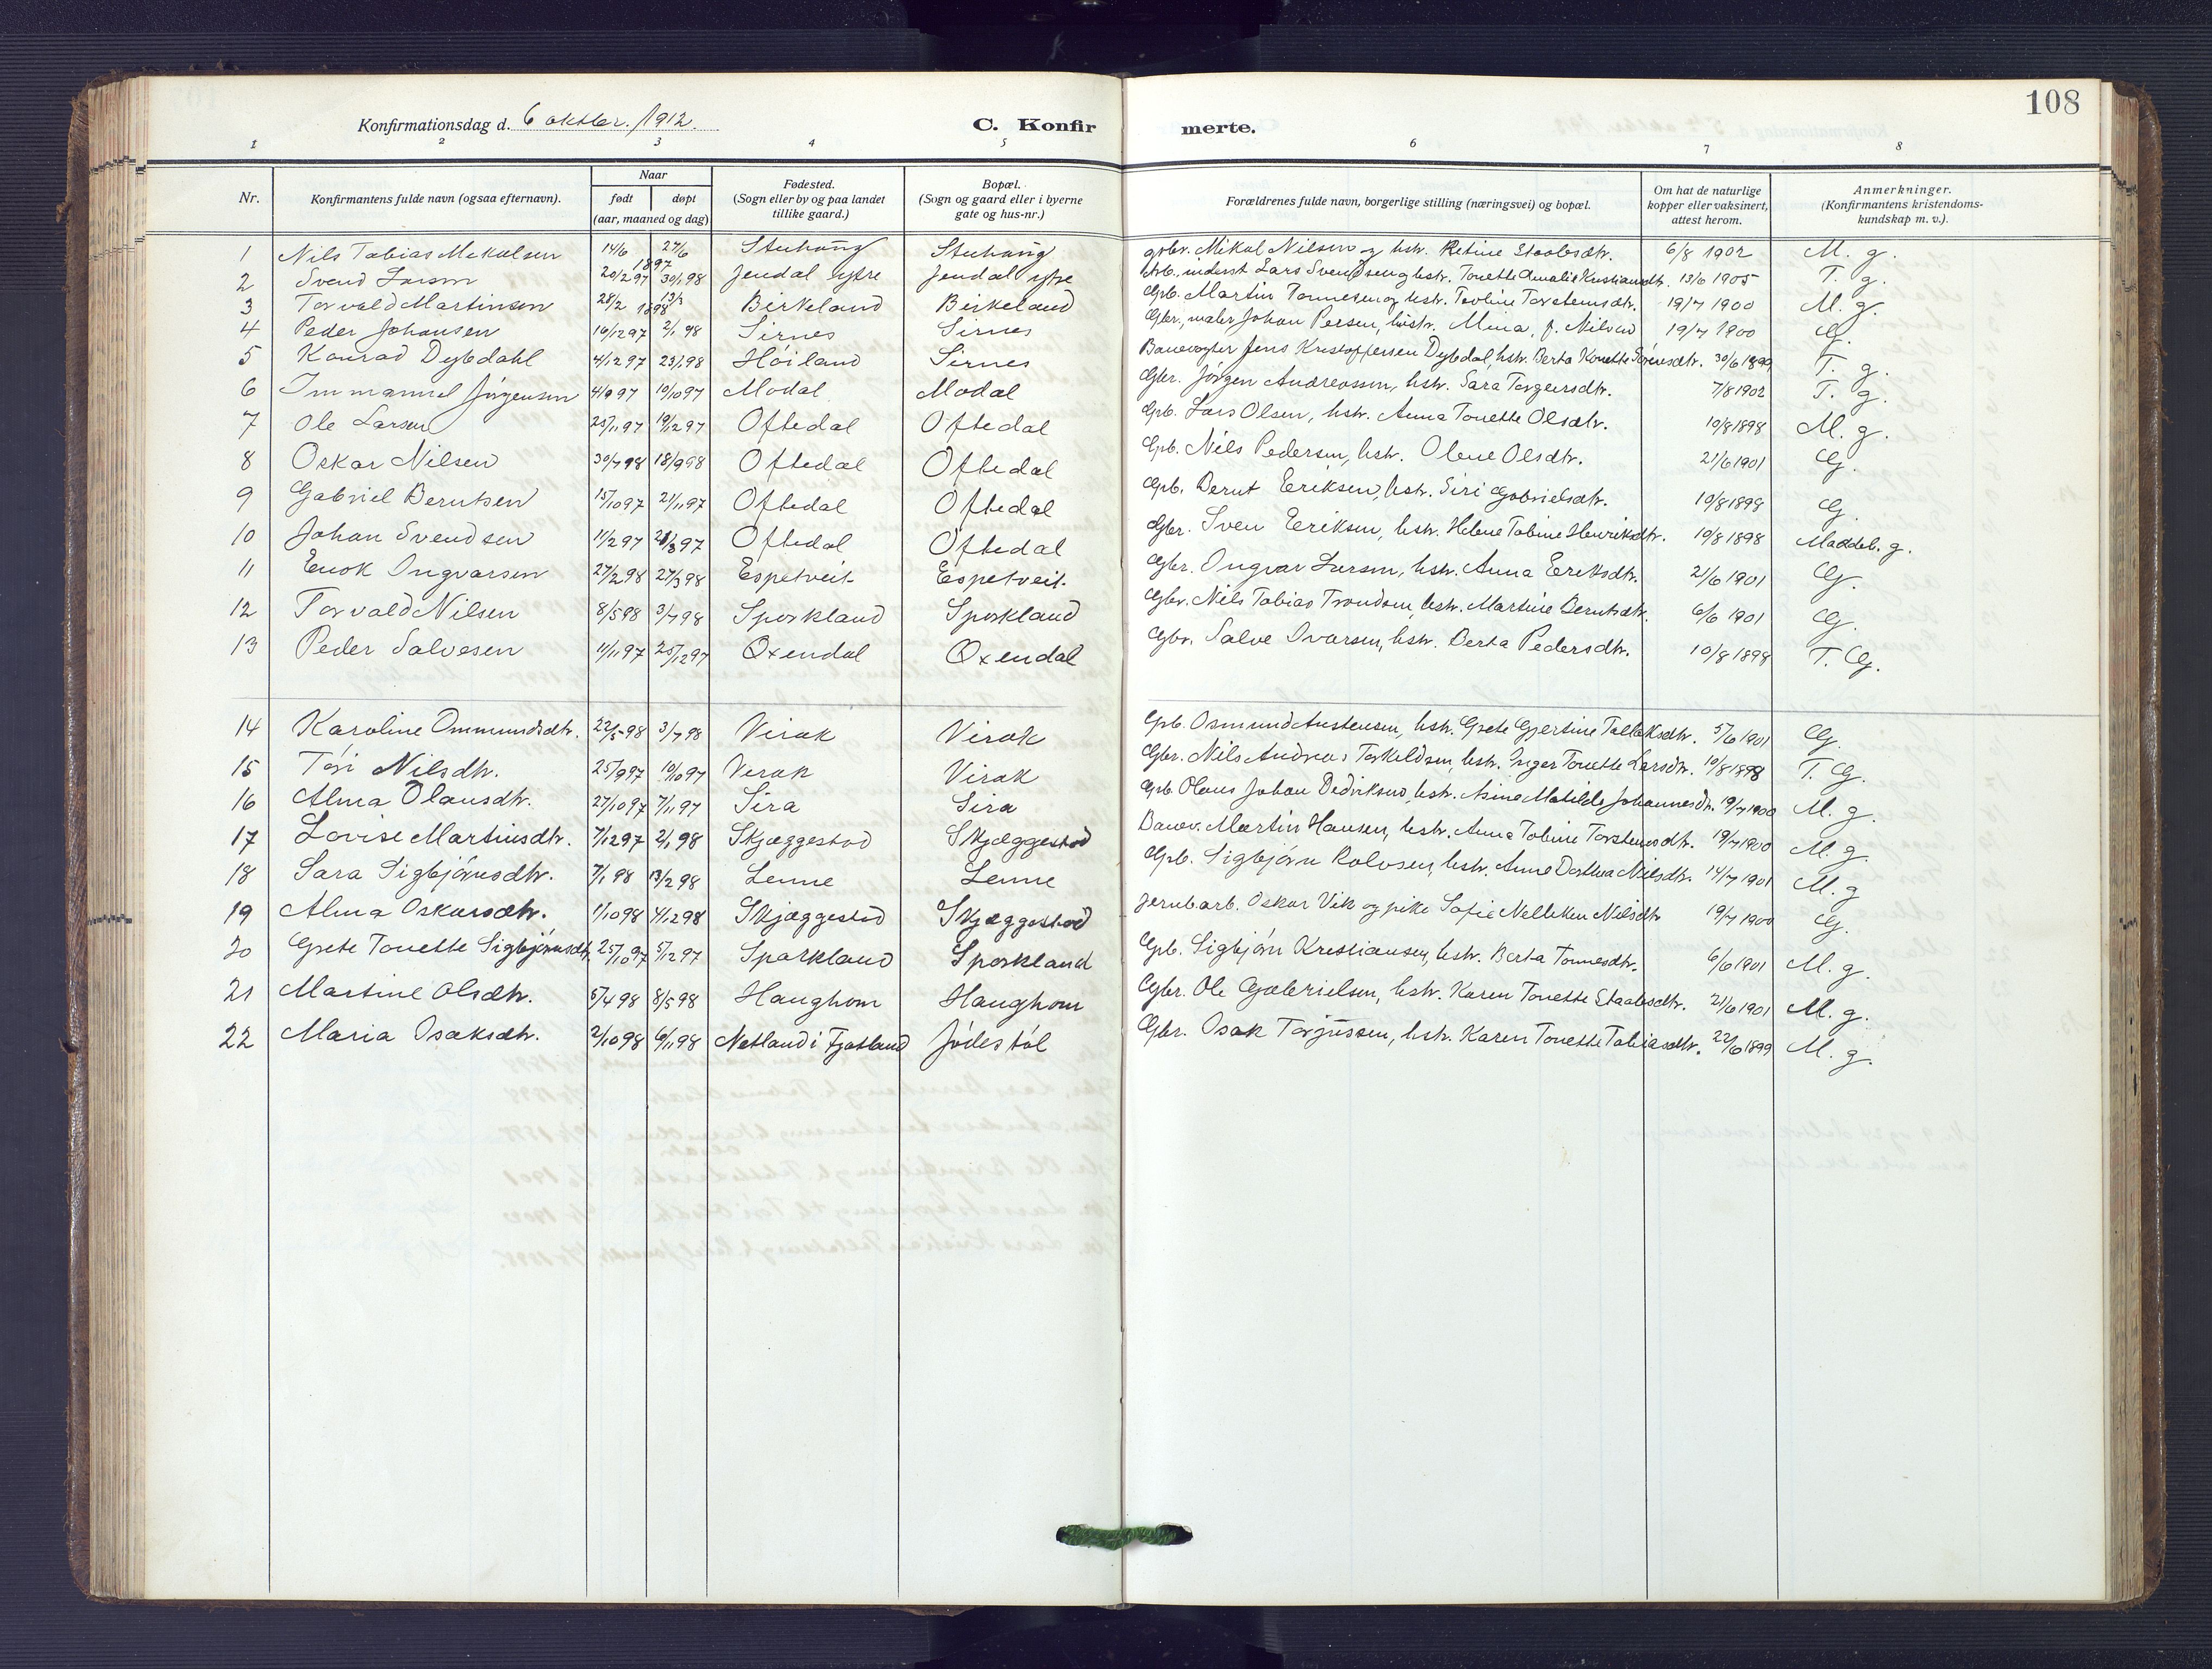 108
Konfirmationsdag d. 6 oktbr. 1912.
C. Konfir
merte.
1 2 3 4 5 6 7 8
Nr.
Konfirmantens fulde navn (ogsaa efternavn).
Naar
født
døpt
(aar, maaned og dag)
Fødested.
(Sogn eller by og paa landet
tillike gaard.)
Bopæl.
(Sogn og gaard eller i byerne
gate og hus-nr.)
Forældrenes fulde navn, borgerlige stilling (næringsvei) og bopæl.
Om hat de naturlige
kopper eller vaksinert,
attest herom.
Anmerkninger.
(Konfirmantens kristendoms-
kundskap m. v.).
1 Nils Tobias Mikalsen 14/6 27/6 1897 gbr. Mikal Nilsen og hstr. Petine Staalesdtr. 6/8 1902 M. g.
2 Svend Larsen 20/297 30/198 Jendal ytre Jendal ytre inderst Lars Svendsen og hstr. Tonette Amalie Kristiansdtr. 13/6 1905 T. g.
3 Torvald Martinsen 28/2 13/3 1898 Birkeland Birkeland Gbr. Martin Tonnesen og hstr. Torstensdtr. 19/7 1900 M. g.
4 Peder Johansen 16/1297 2/1 98 Sirnes Sirnes Gbr., maler Johan Persen, hustr. Mina, f. Nilsen 19/7 1900 G.
5 Konrad Dybdahl 4/1297 23/198 Höiland Sirnes Banevogter Jens Kristoffersen Dybdal, hstr. Berta Sörensdtr. 30/6 1899 T. g.
6 Immanuel Jörgensen 4/997 10/1097 Modal Modal Gbr. Jörgen Andreassen, hstr. Sara Torgersdtr. 7/8 1902 T. g.
7 Ole Larsen 25/1197 19/1297 Oftedal Oftedal Gbr. Lars Olsen, hstr. Anna Tonette Olsdtr. 10/8 1898 M. g.
8 Oskar Nilsen 30/798 18/998 Oftedal Oftedal Gbr. Nils Pedersen, hstr. Olene Olsdtr. 21/6 1901 G.
9 Gabriel Berntsen 15/1097 21/1197 Oftedal Oftedal Gbr. Bernt Eriksen, hstr. Siri Gabrielsdtr. 10/8 1898 G.
10 Johan Svendsen 11/297 21/397 Oftedal Oftedal Gbr. Sven Eeriksen, hstr. Helene Tobine Henriksdtr. 10/8 1898 Maadel. g.
11 Enok Ingvarsen 27/298 27/398 Espetveit Espetveit Gbr. Ingvar Larsen, hstr. Anna Eriksdtr. 21/6 1901 G.
12 Torvald Nilsen 8/598 3/798 Sporkland Sporkland Gbr. Nils Tobias Trondsen, hstr. Martine Berntsdtr. 6/6 1901 G.
13 Peder Salvesen 11/1197 25/1297 Oxendal Oxendal Gbr. Salve Ivarsen, hstr. Berta Pedersdtr. 10/8 1898 T. G.
14 Karoline Ommundsdtr. 22/598 3/798 Virak Virak Gbr. Osmund Austensen, hstr. Grete Gjertine Tallaksdtr. 5/6 1901 G.
15 Töri Nilsdtr. 25/997 10/1097 Virak Virak Gbr. Nils Andreas Torkeldsen, hstr. Inger Tonette Larsdtr. 10/8 1898 T. G.
16 Alma Olausdtr. 27/1097 7/1197 Sira Sira Gbr. Olaus Johan Dedriksen, hstr. Asine Matilde Johannesdtr. 19/7 1900 M. g.
17 Lovise Martinsdtr. 7/1297 2/1 98 Skjæggestad Skjæggestad Banev. Martin Hansen, hstr. Anna Tobine Torstensdtr. 19/7 1900 M. g.
18 Sara Sigbjörnsdtr. 7/1 98 13/298 Lenne Lenne Gbr. Sigbjörn Rolvsen, hstr. Anne Dorthea Nilsdtr. 14/7 1901 M. g
19 Alma Oskarsdtr. 1/1098 4/1298 Skjæggestad Skjæggestad Jernb.arb. Oskar Vik og pike Sofie Nilsdtr 19/7 1900 G.
20 Grete Tonette Sigbjörnsdtr. 25/1097 5/1297 Sparkland Sporkland Gbr. Sigbjörn Kristiansen, hstr. Berta Tonnesdtr. 6/6 1901 M. g.
21 Martine Olsdtr. 5/498 8/598 Haughom Haughom Gbr. Ole Gabrielsen, hstr. Karen Tonette Staalesdtr. 21/6 1901 M. g.
22 Maria Osaksdtr. 2/1098 6/1198 Netland i Fjotland Jödestöl Gbr. Osak Torjussen, hstr. Karen Tonette Tobiasdtr. 22/6 1899 M. g.